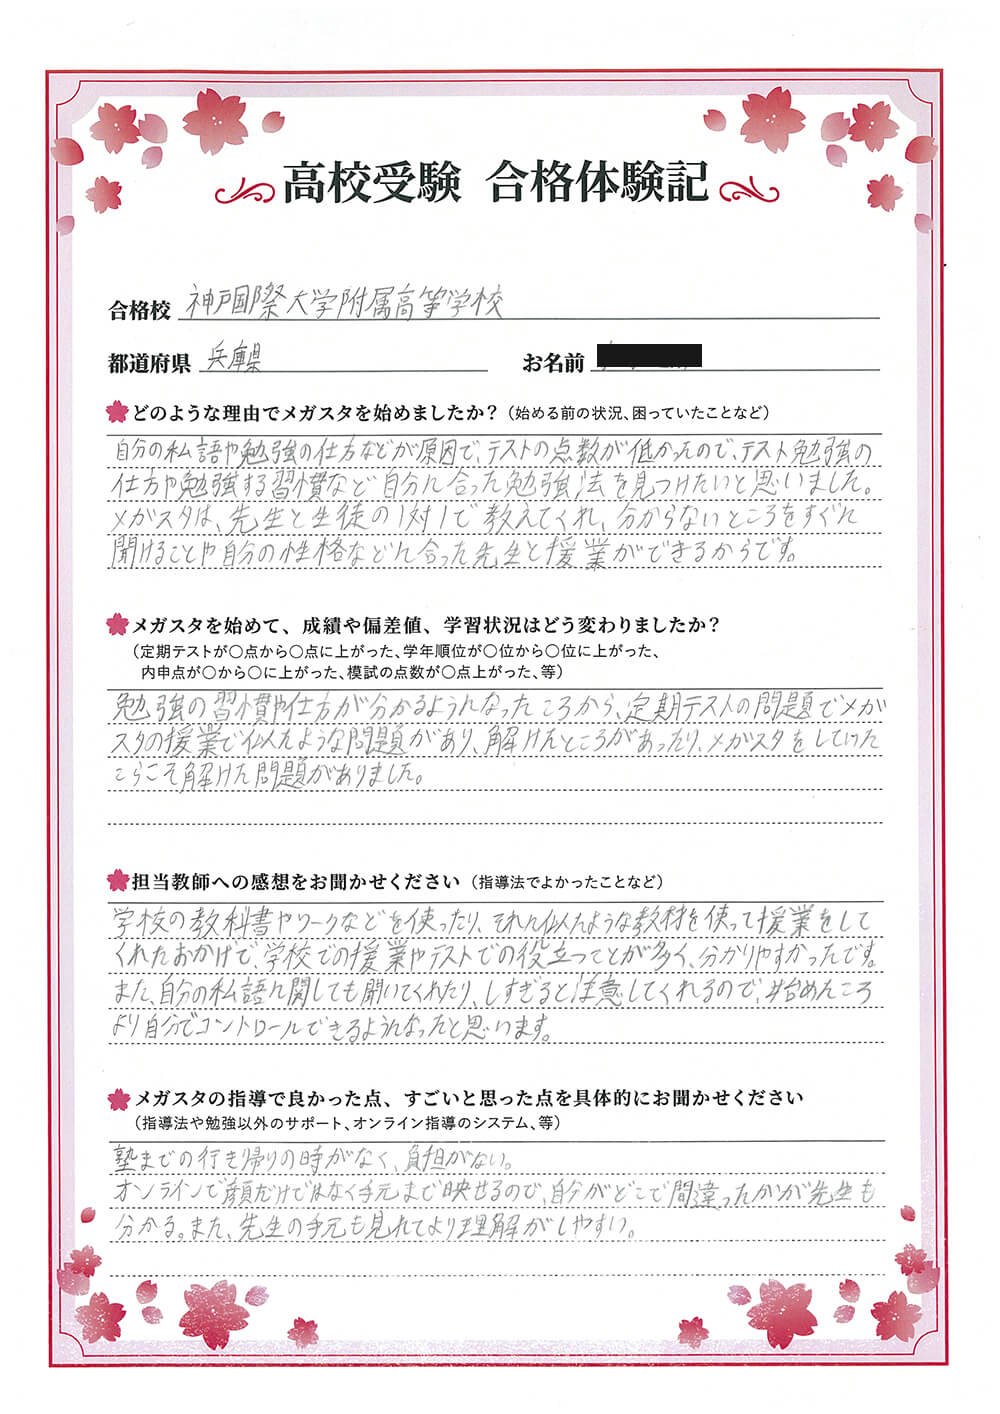 高校受験 合格体験記
合格校 神戸国際大学附属高等学校
都道府県 兵庫県 お名前
どのような理由でメガスタを始めましたか？（始める前の状況、困っていたことなど）
自分の私語や勉強の仕方などが原因で、テストの点数が低かったので、テスト勉強の
仕方や勉強する習慣など自分に合った勉強法を見つけたいと思いました。
メガスタは、先生と生徒の1対1で教えてくれ、分からないところをすぐに
聞けることや自分の性格などに合った先生と授業ができるからです。
メガスタを始めて、成績や偏差値、学習状況はどう変わりましたか？
（定期テストが〇点から〇点に上がった、学年順位が〇位から〇位に上がった、
内申点が〇から〇に上がった、模試の点数が〇点上がった、等）
勉強の習慣や仕方が分かるようになったころから、定期テストの問題でメガ
スタの授業で似たような問題があり、解けたところがあったり、メガスタをしていた
こらこそ解けた問題がありました。
担当教師への感想をお聞かせください（指導法でよかったことなど）
学校の教科書やワークなどを使ったり、それに似たような教材を使って授業をして
くれたおかげで、学校での授業やテストでの役立つてとが多く、分かりやすかったです。
また、自分の私語に関しても聞いてくれたり、しすぎると注意してくれるので、始めたころ
より自分でコントロールできるようになったと思います。
メガスタの指導で良かった点、すごいと思った点を具体的にお聞かせください
（指導法や勉強以外のサポート、オンライン指導のシステム、等）
塾までの行き帰りの時がなく、負担がない。
オンラインで顔だけではなく手元まで映せるので、自分がどこで間違ったかが先生も
分かる。また、先生の手元も見れてより理解がしやすい。